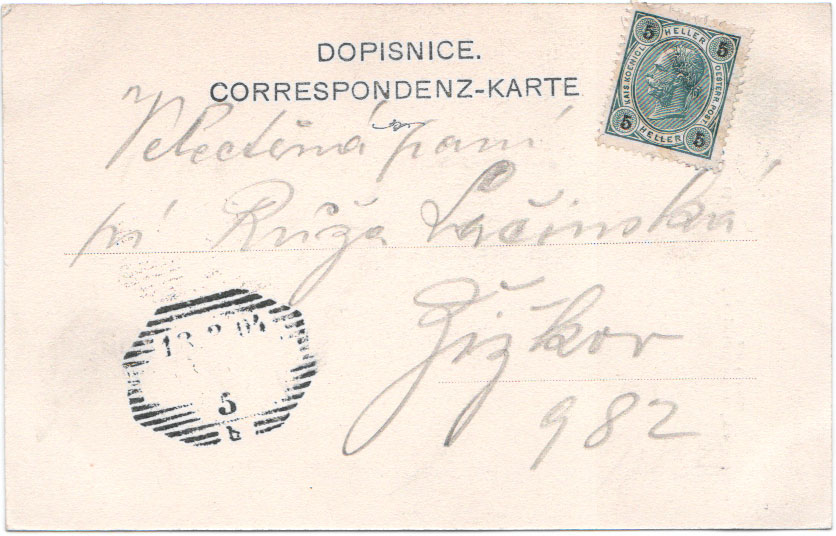 DOPISNICE.
CORRESPONDENZ-KARTE
5 HELLER 5
KAIS. KOENIGL. OESTERR. POST.
5 HELLER 5
Velectěná paní
pí Růža Lačinská
Žižkov
982
13 2 04
5
b